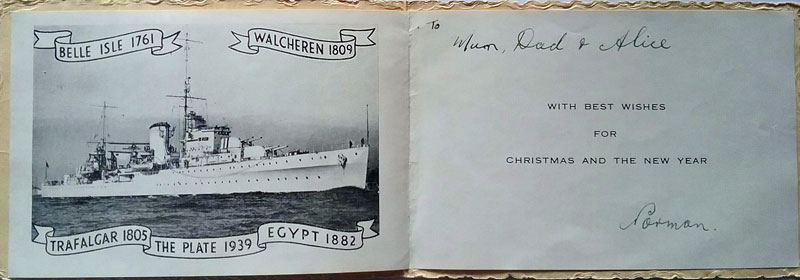 BELLE ISLE 1761
WALCHEREN 1809
TRAFALGAR 1805
THE PLATE 1939
EGYPT 1882
To
Mum, Dad & Alice
WITH BEST WISHES
FOR
CHRISTMAS AND THE NEW YEAR
Norman.